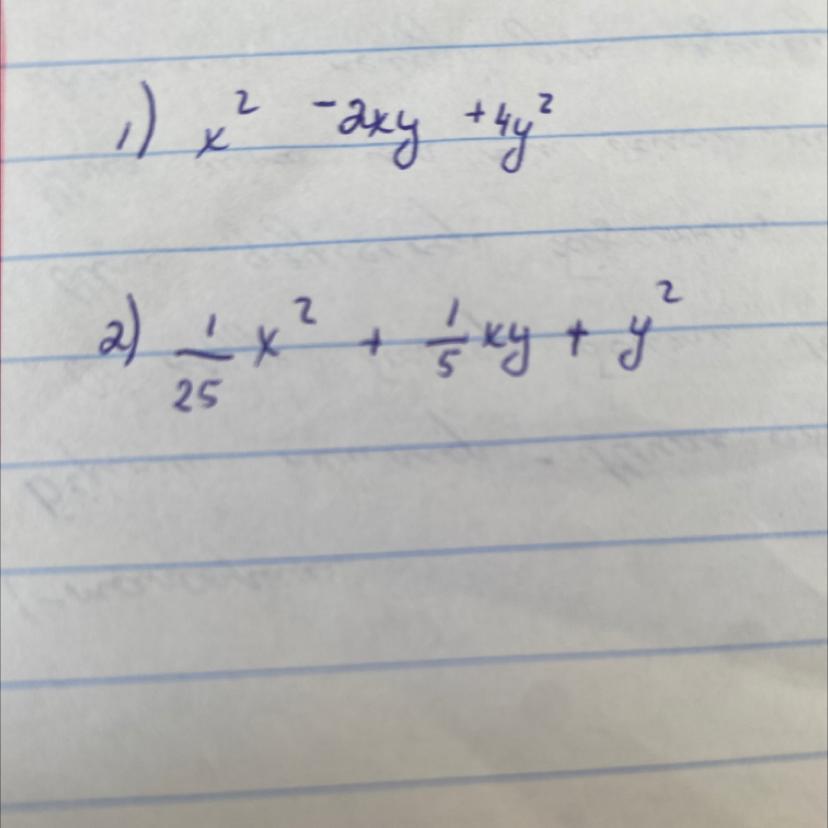 1) x² -2xy +4y²
2) 1/25 x² + 1/5 xy + y²